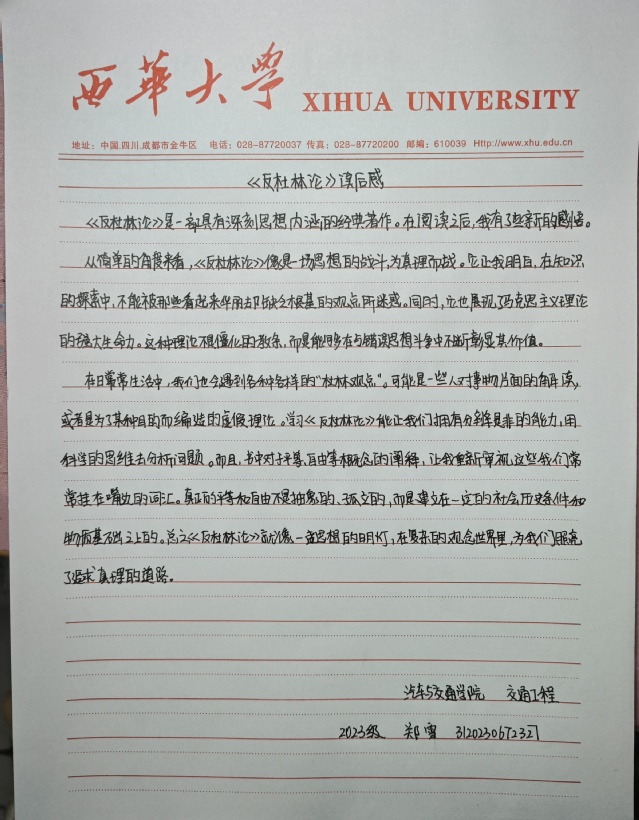 西華大學 XIHUA UNIVERSITY
地址：中国.四川.成都市金牛区 电话：028-87720037 传真：028-87720200 邮编：610039 Http://www.xhu.edu.cn
《反杜林论》读后感
《反杜林论》是一部具有深刻思想内涵的经典著作。在阅读之后，我有了些新的感悟。
从简单的角度来看，《反杜林论》像是一场思想的战斗，为真理而战。它让我明白，在知识
的探索中，不能被那些看起来华丽却缺乏根基的观点所迷惑。同时，它也展现了马克思主义理论
的强大生命力。这种理论不是僵化的教条，而是能够在与错误思想斗争中不断彰显其价值。
在日常生活中，我们也会遇到各种各样的“杜林观点”。可能是一些人对事物片面的解读，
或者是为了某种目的而编造的虚假理论。学习《反杜林论》能让我们拥有分辨是非的能力，用
科学的思维去分析问题。而且，书中对于平等、自由等概念的阐释，让我重新审视这些我们常
常挂在嘴边的词汇。真正的平等和自由不是抽象的、孤立的，而是建立在一定的社会历史条件和
物质基础之上的。总之《反杜林论》就像一盏思想的明灯，在复杂的观念世界里，为我们照亮
了追求真理的道路。
汽车与交通学院 交通工程
2023级 郑雪 3120230672327